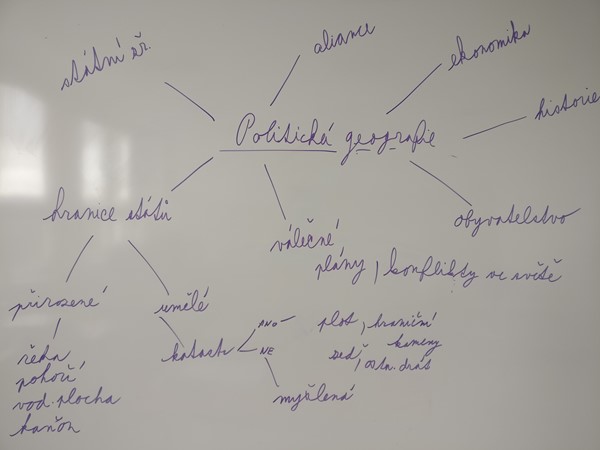 státní zř.
aliance
ekonomika
historie
Politická geografie
hranice států
válečné
plány, konflikty ve světě
obyvatelstvo
přirozené
umělé
řeka
pohoří
vod. plocha
kaňon
katastr
ANO
NE
plot, hraniční
kameny
zeď, ostn. drát
myšlená